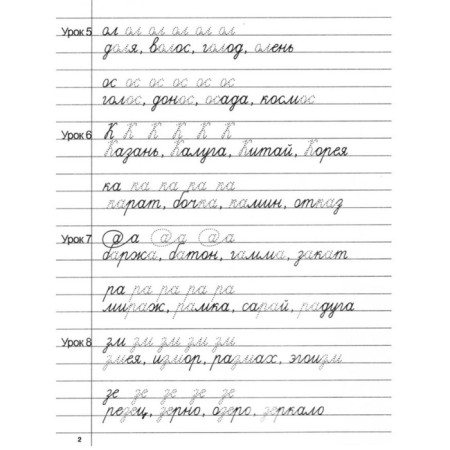 Урок 5 ол ол ол ол ол ол
доля, волос, голод, олень
ос ос ос ос ос ос
голос, донос, осада, космос
Урок 6 К К К К К К
Казань, Калуга, Китай, Корея
ка ка ка ка ка
карат, бочка, камин, отказ
Урок 7 @а @а @а
баржа, батон, гамма, закат
ра ра ра ра ра ра
мираж, рамка, сарай, радуга
Урок 8 зм зм зм зм зм
змея, измор, размах, эгоизм
зе зе зе зе зе
резец, зерно, озеро, зеркало
2